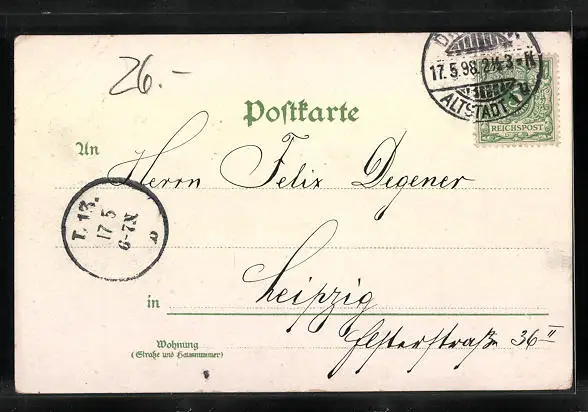 26.-
17.5.98.2½3-N
ALTSTADT
REICHSPOST
Postkarte
An
Herrn Felix Degener
17 5
6-7N.
Leipzig
in
Elsterstraße 36 II
Wohnung
(Straße und Hausnummer)